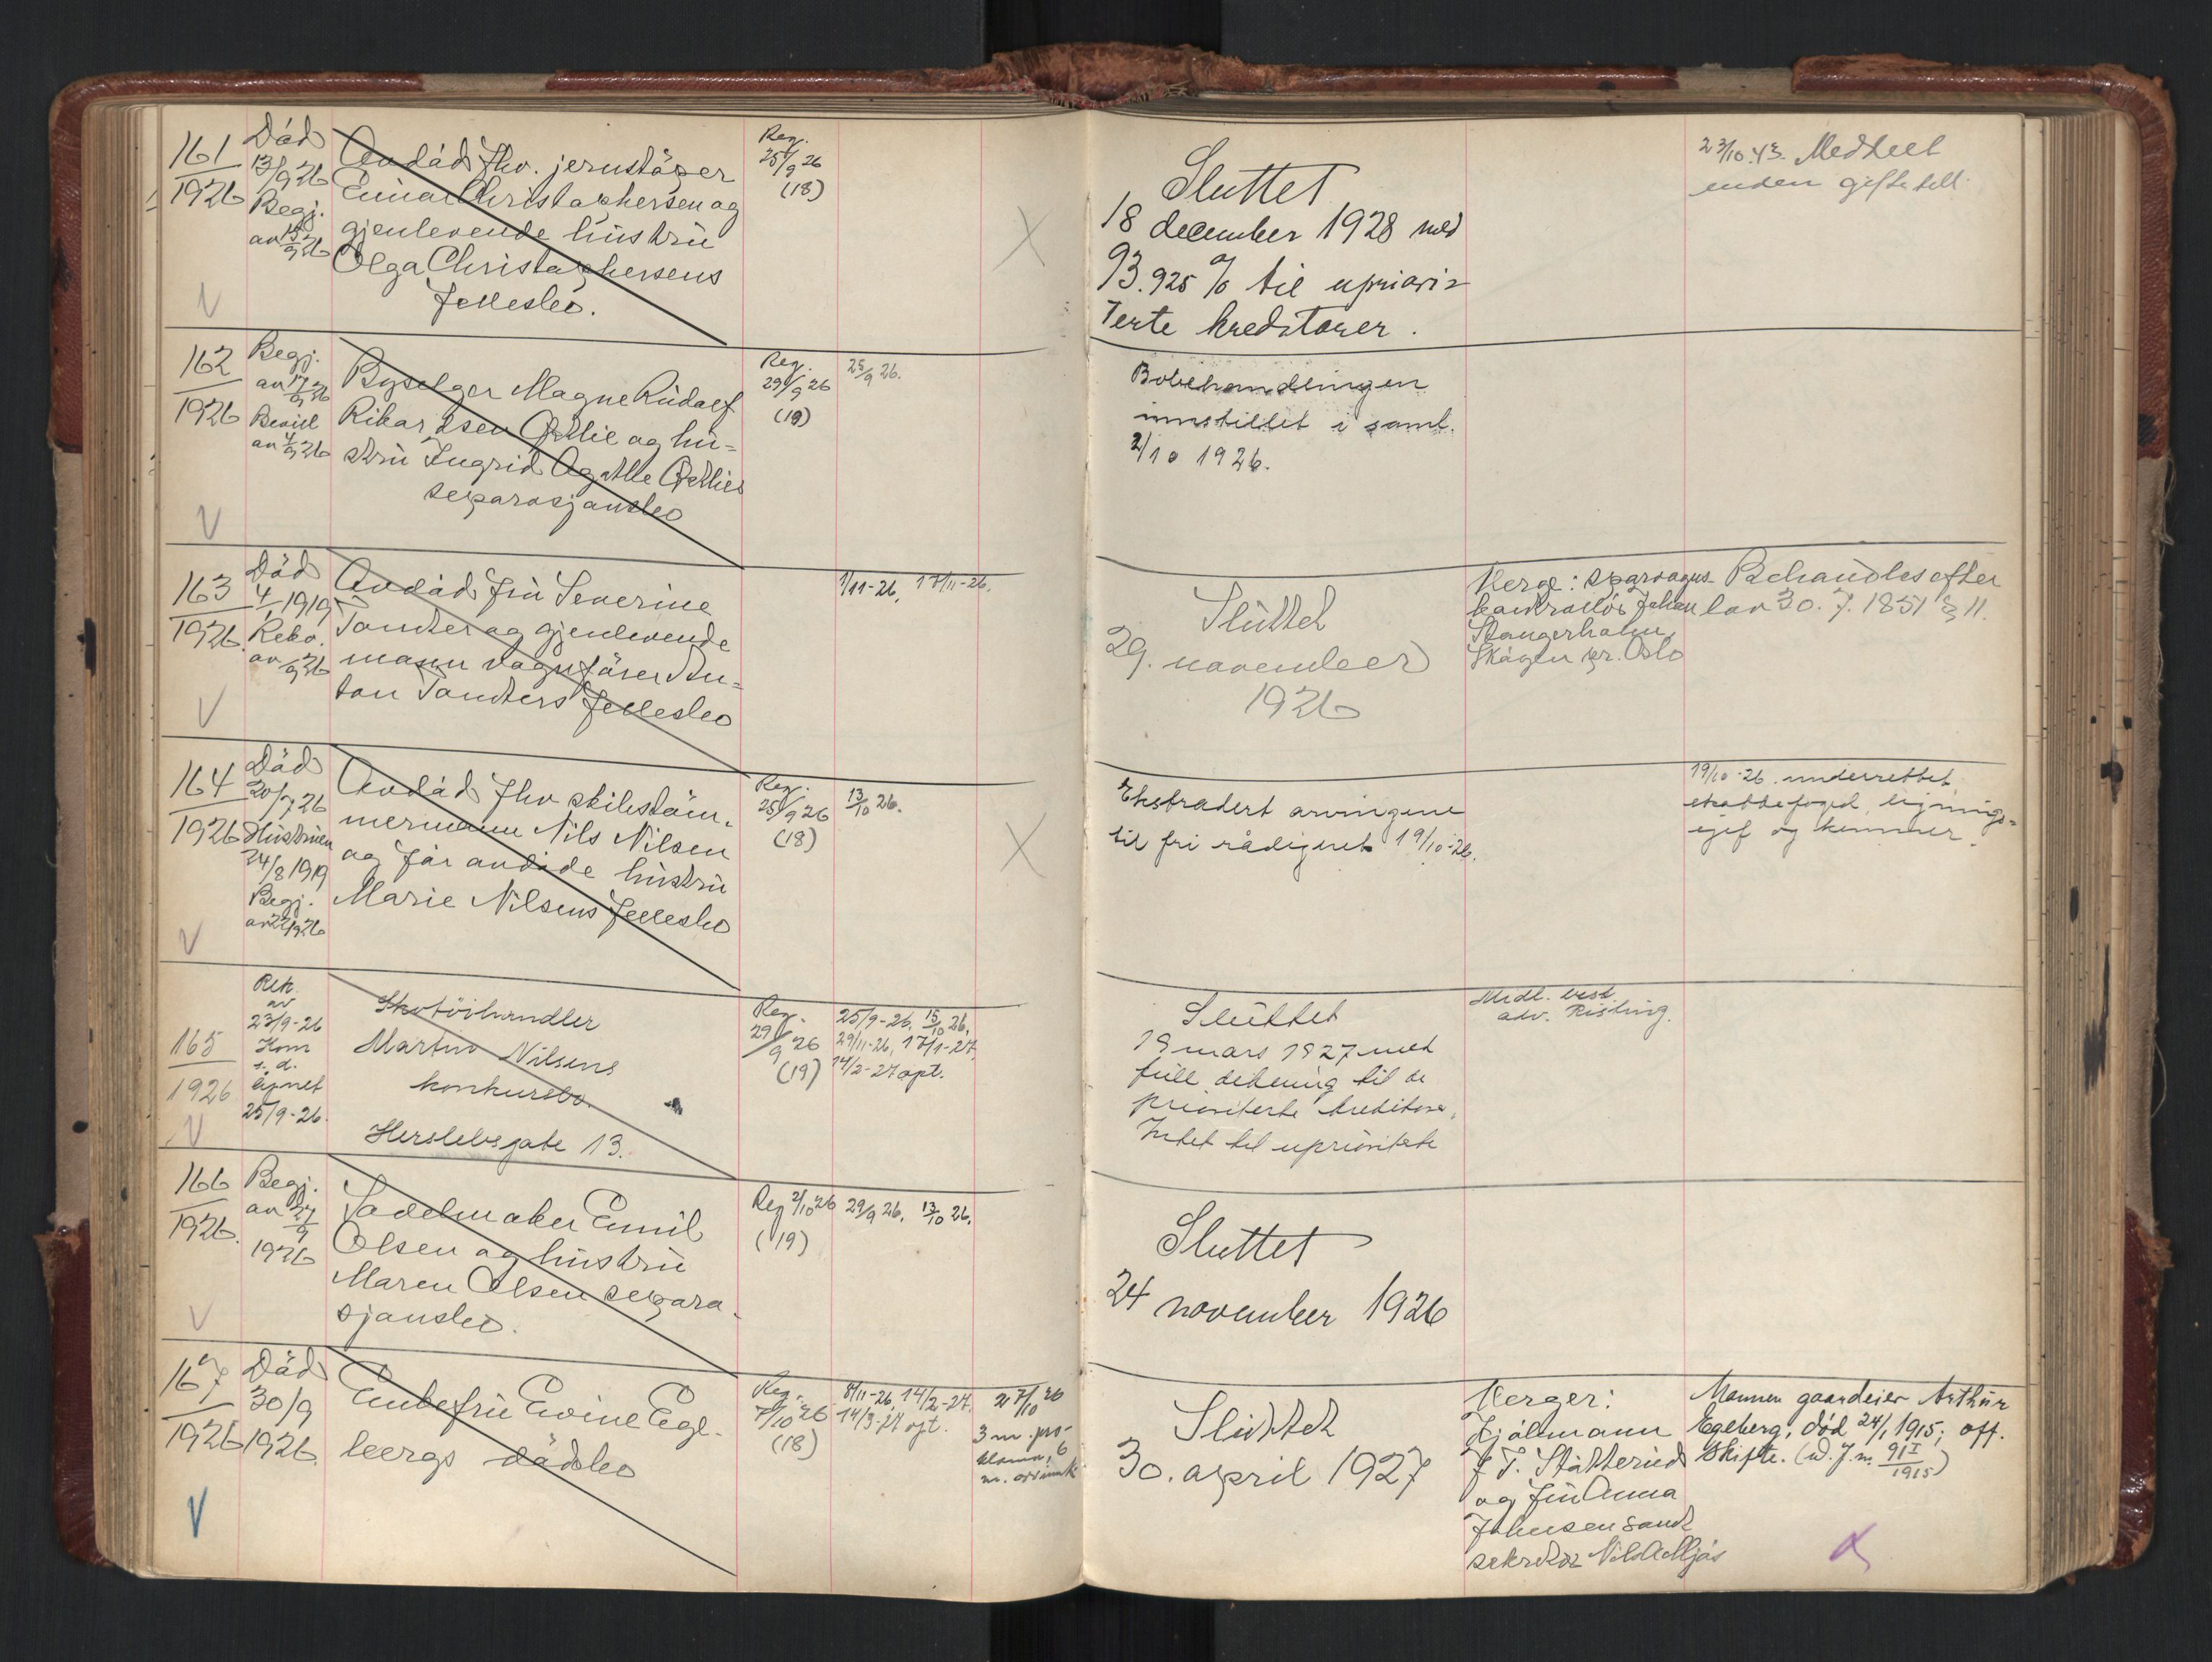 161
1926
Död
13/9 26
Begj.
av 15/9 26
Avdöd fhv. jernstöper
Einar Christophersen og
gjenlevende hustru
Olga Christophersens
fellesbo.
Reg.
25/9 26
(18)
Sluttet
18 december 1928 med
93.925 % til upriori=
terte kreditorer.
23/10.43. Meddelt
enken giftetill.
162
1926
Begj.
av 17/9 26
Bevill
av 4/9 26
Byselger Magne Rudolf
Rikardsen Östlie og hu=
stru Ingrid Agathe Östlies
separasjonsbo
Reg.
29/9 26
(19)
25/9 26.
Bobehandlingen
innstillet i saml.
2/10 1926.
163
1926
Död
4/ 1919
Rekv.
av /9 26
Avdöd fru Severine
Tandter og gjenlevende
mann vognförer An=
ton Tandters fellesbo
1/11-26, 17/11-26.
Sluttet
29. november
1926
Verge: sporvogns
kontrollör Johan
Stangerholm,
Skögen pr. Oslo
Behandles efter
lov 30. 7. 1851 § 11.
164
1926
Död
20/7 26
Hustruen
24/8 1919
Begj.
av 22/9 26
Avdöd fhv skibstöm=
mermann Nils Nilsen
og för avdöde hustru
Marie Nilsens fellesbo
Reg.
25/9 26
(18)
13/10 26.
Ekstradert arvingene
til fri rådighet 19/10-26.
19/10-26 underrettet
skattefoged, lignings=
sjef og kemner.
165
1926
Rek.
av
23/9-26
Kom
s. d.
åpnet
25/9-26.
Skotöihandler
Martin Nilsens
konkursbo.
Herslebsgate 13.
Reg.
29/9 26
(19)
25/9-26, 15/10 26,
29/11-26, 17/1-27,
14/2-27 opt.
Sluttet
19 mars 1927 med
full dekning til de
prioriterte kreditorer,
Intet til uprioriterte
Midl. best
adv. Risting.
166
1926.
Begj.
av 27/9
1926
Sadelmaker Emil
Olsen og hustru
Maren Olsen separa=
sjonsbo.
Reg 2/10 26
(19)
29/9 26, 13/10 26.
Sluttet
24 november 1926
167
1926
Död
30/9
1926.
Enkefru Evine Ege=
bergs dödsbo
Reg.
7/10 26
(18)
8/11-26, 14/2-27.
14/3-27 opt.
27/10 26
3 m. pro=
klama, 6
m.
Sluttet
30. april 1927
Verger:
Hjálmann
J. T. Stötterud
og fru Anna
Johnsen samt
sekretær Nils
Mannen gaardeier Arthur
Egeberg, död 24/1 1915; off.
skifte. (s. J. m. 91 I/1915)